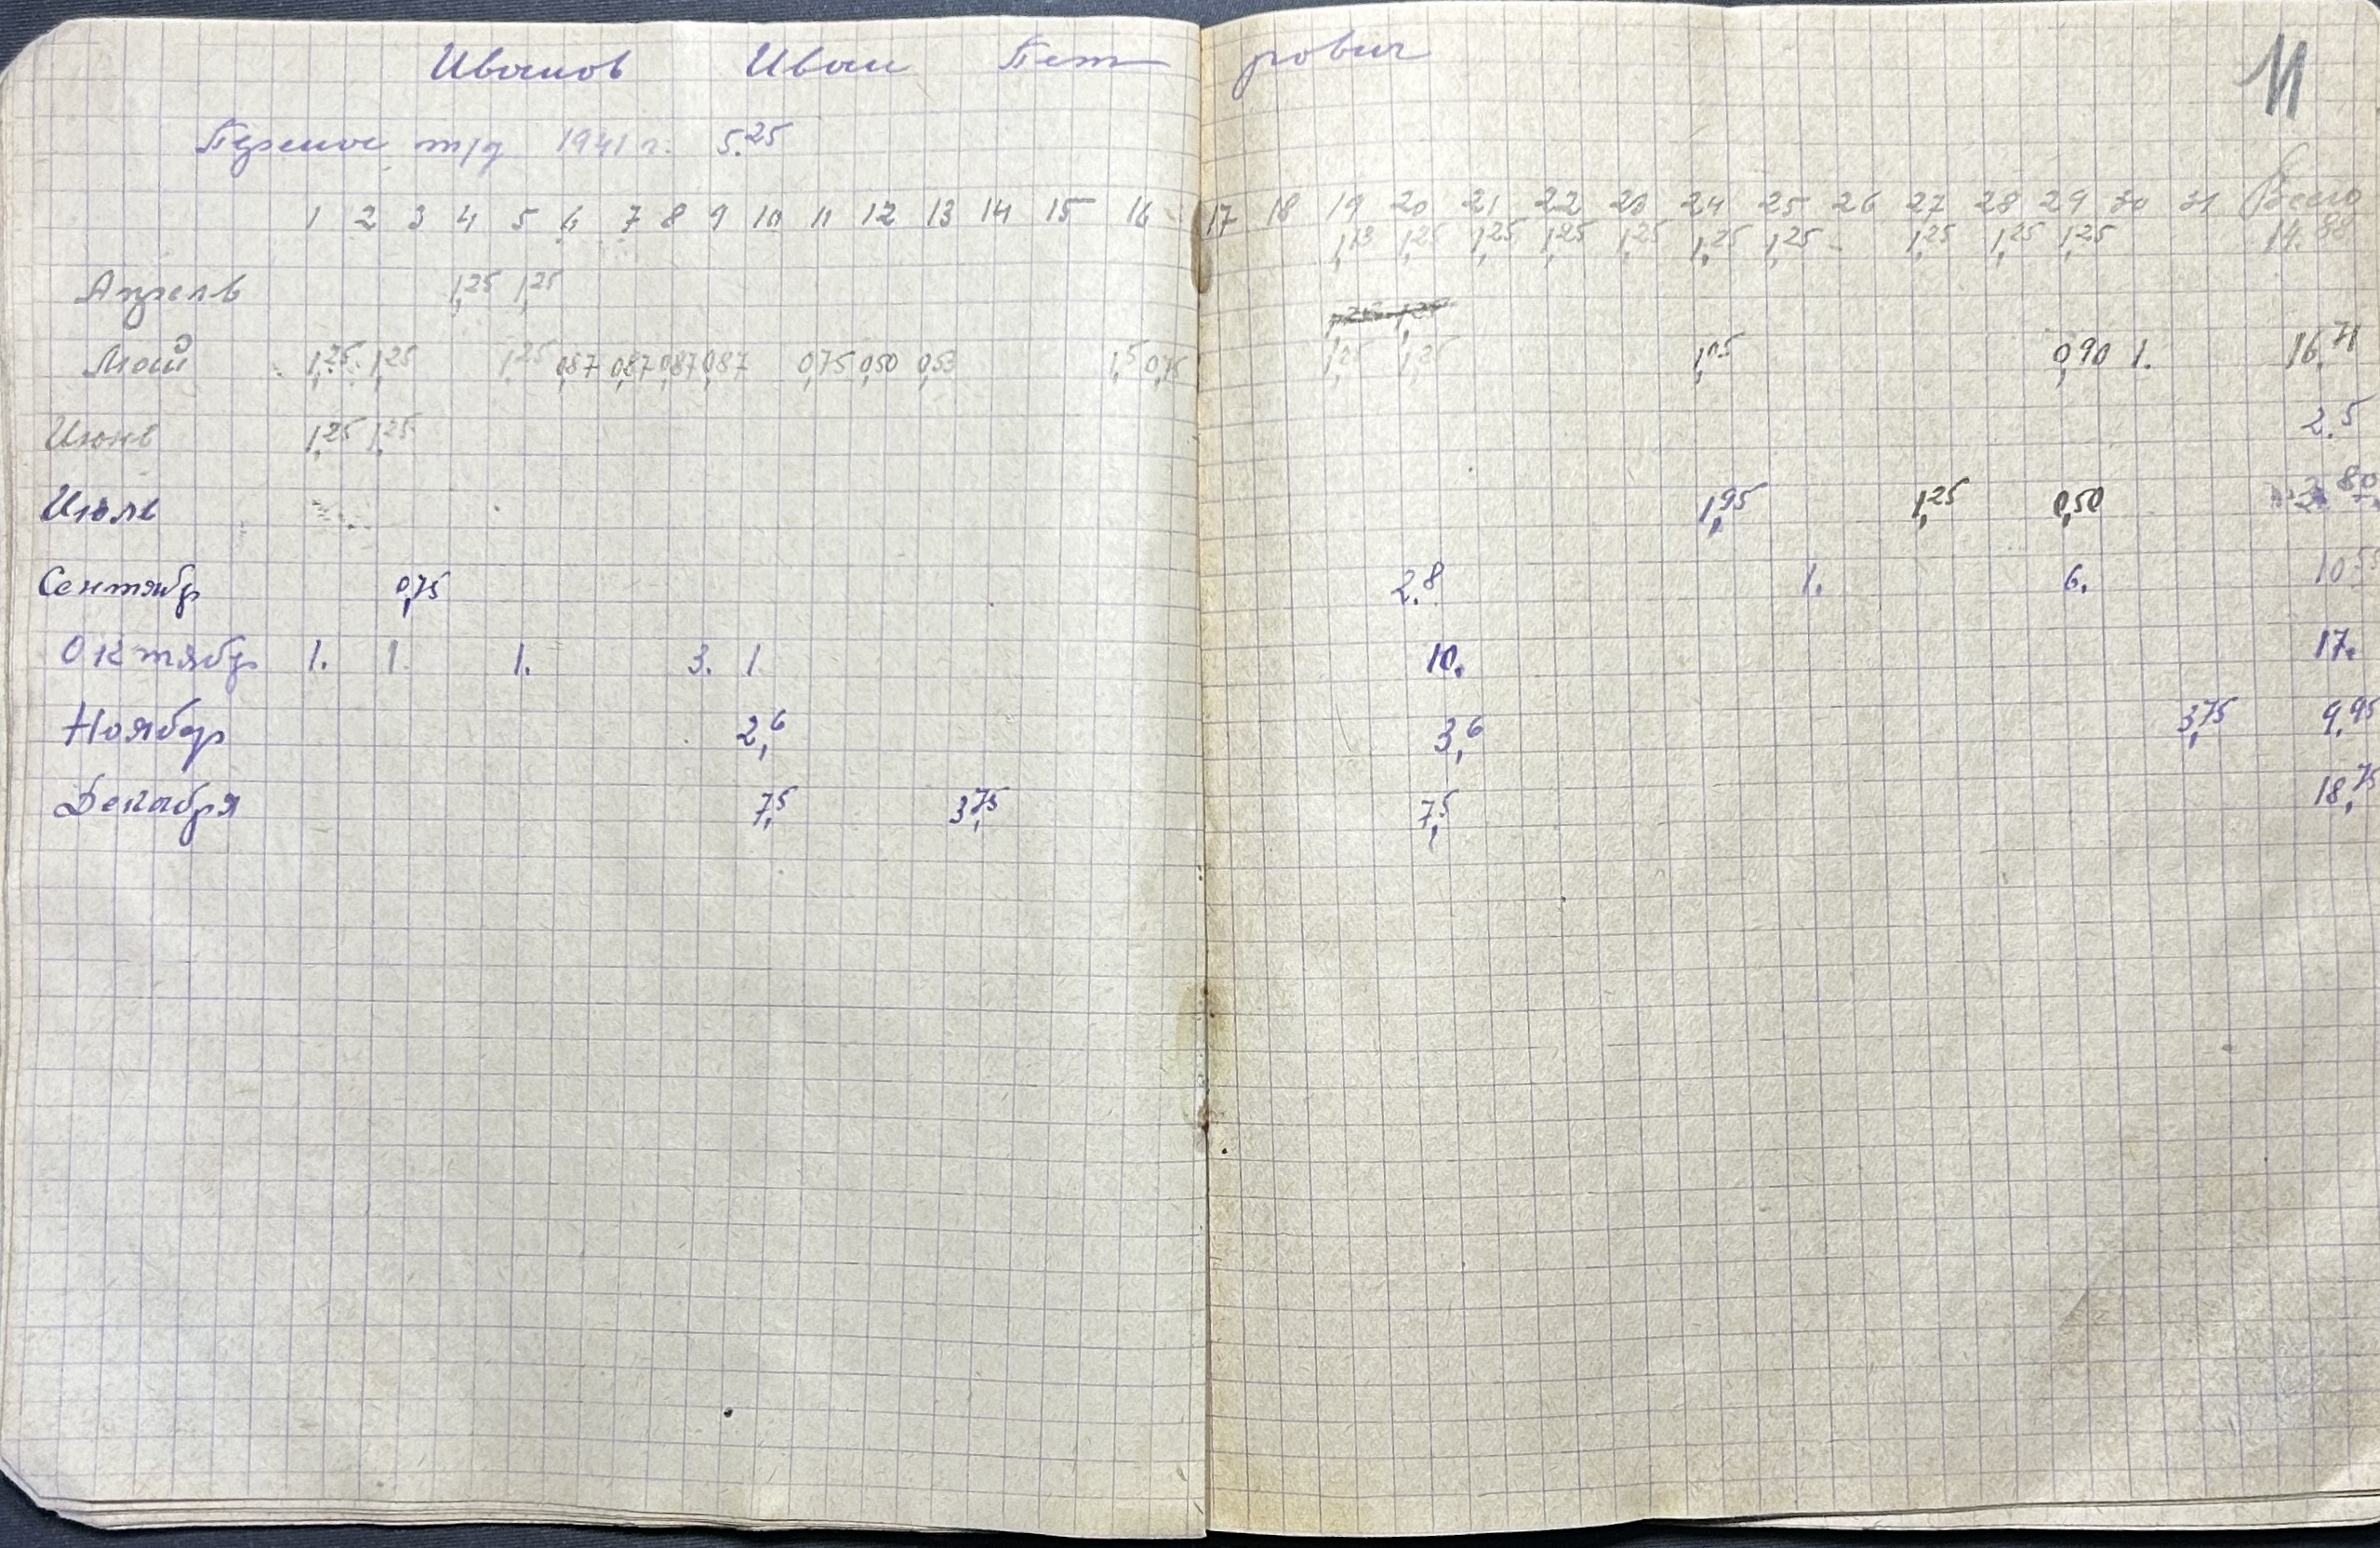 Иванов Иван Петрович
11
Перенос т/д 1941 г. 5.25
1 2 3 4 5 6 7 8 9 10 11 12 13 14 15 16 17 18 19 20 21 22 23 24 25 26 27 28 29 30 31 Всего
1,13 1,25 1,25 1,25 1,25 1,25 1,25 1,25 1,25 1,25 14.88
Апрель 1,25 1,25
Май 1,25 1,25 1,25 0,87 0,87 0,87 0,87 0,75 0,50 0,53 1,5 0,75 1,25 1,25 1,05 0,90 1. 16,71
Июнь 1,25 1,25 2.5
Июль 1,95 1,25 0,50
Сентябр 0,75 2.8 1. 6. 10.55
Октябр 1. 1. 1. 3. 1 10. 17.
Ноябр 2,6 3,6 3,75 9,95
Декабря 7,5 3,75 7,5 18,75